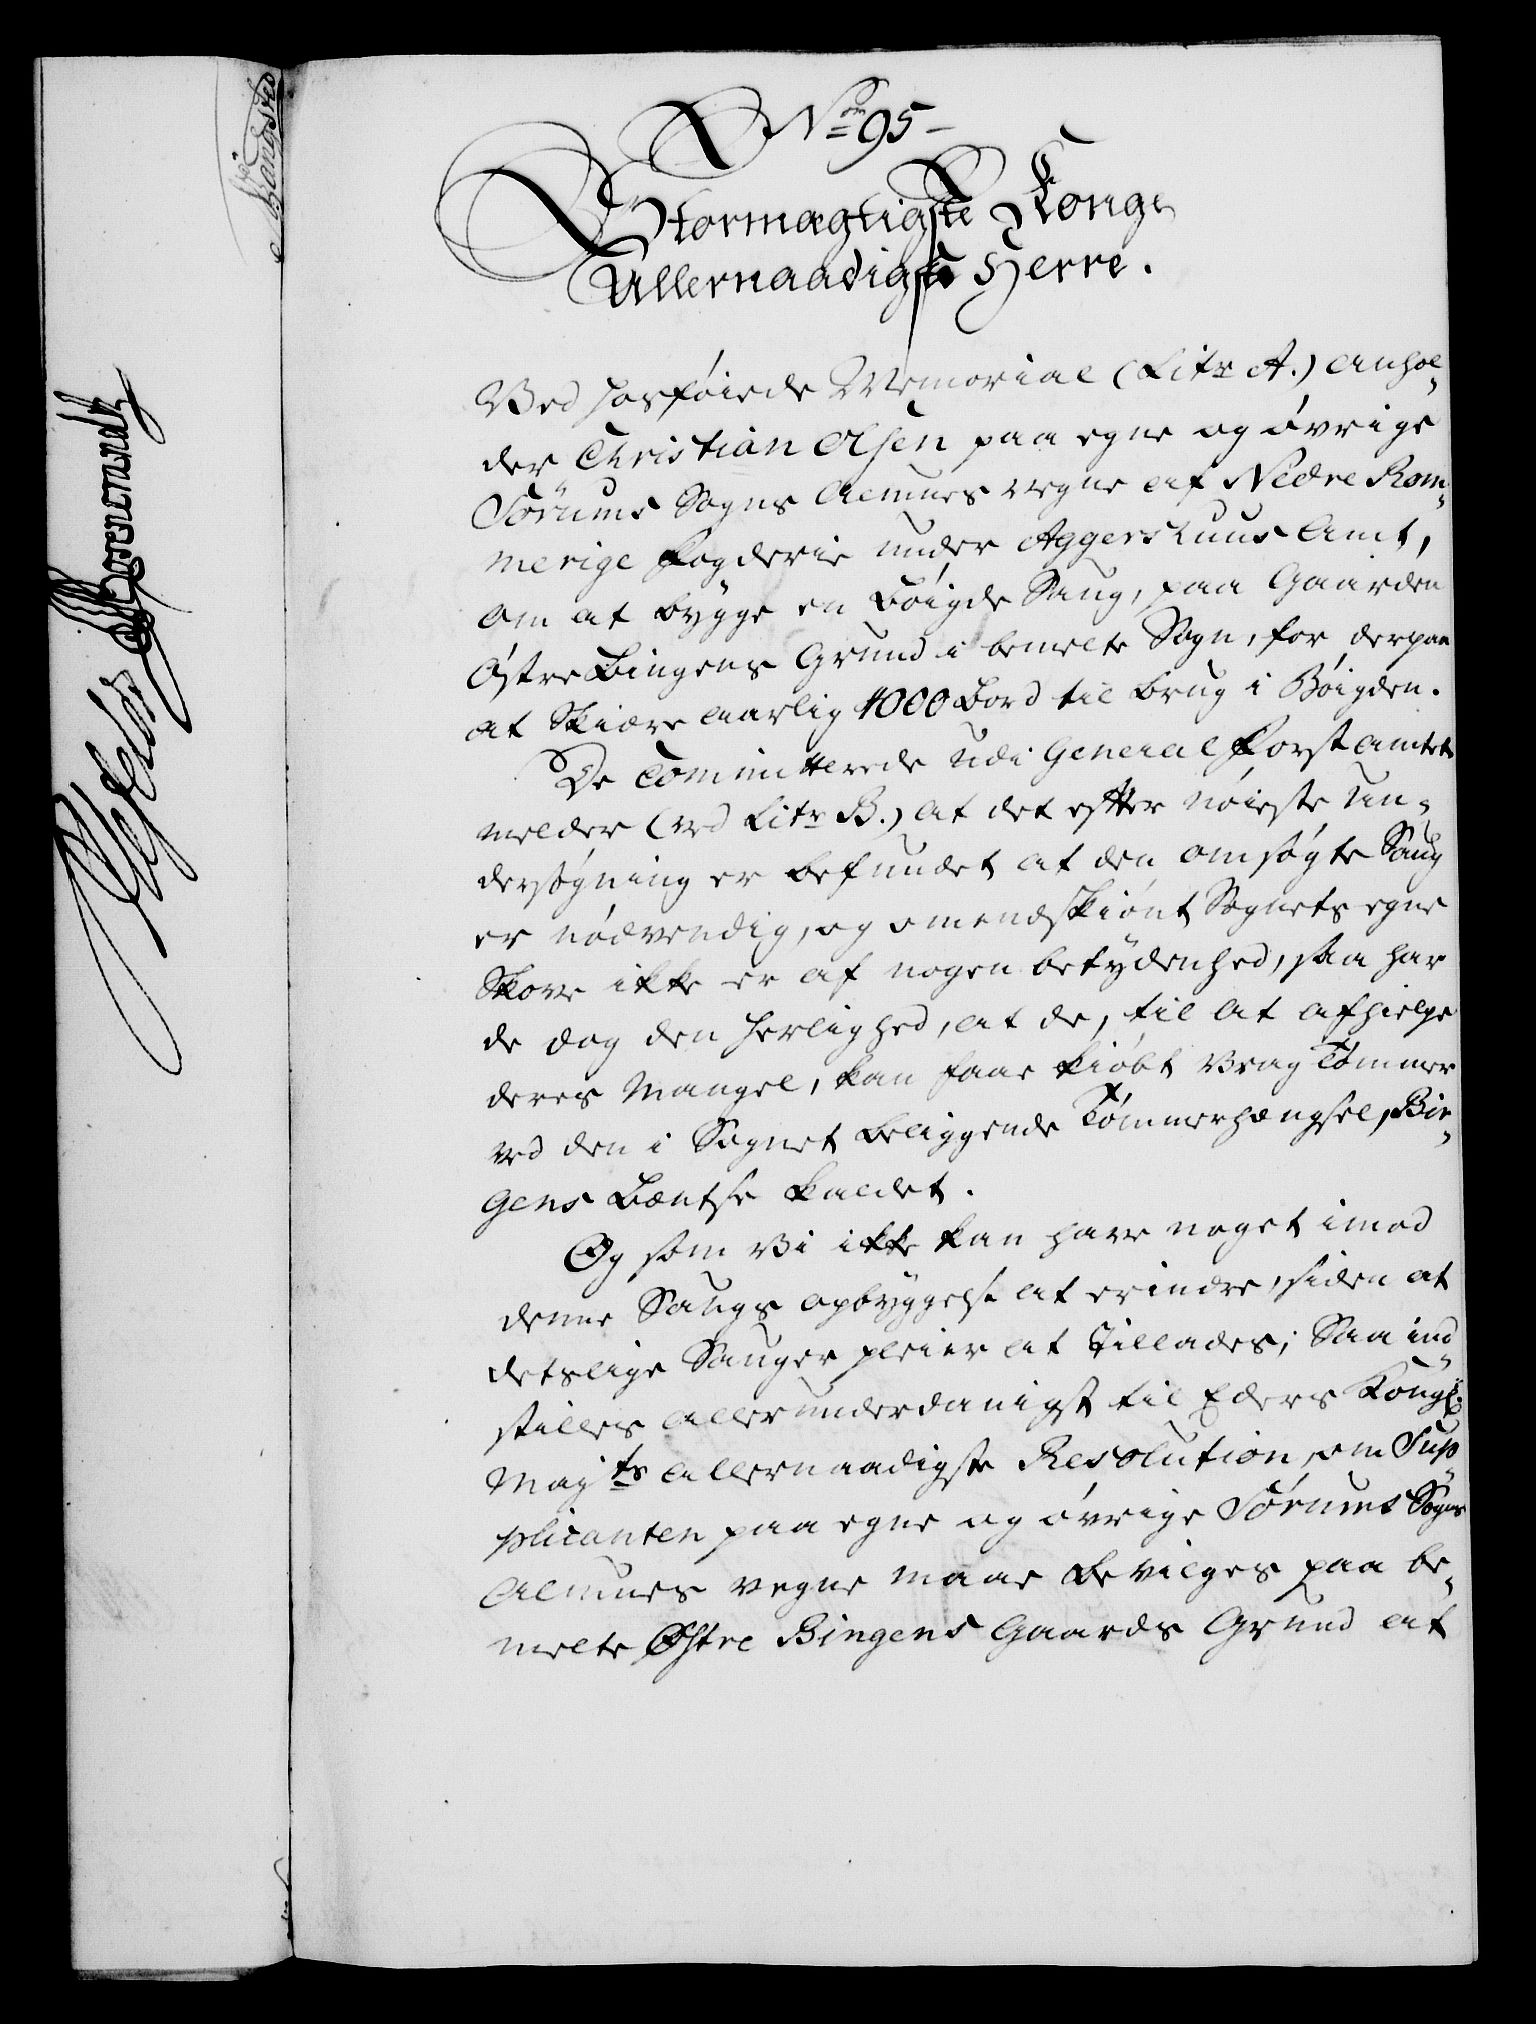 No 95
Stormægtigste Konge
Allernaadigste Herre.
Ved hosföiede Memorial (Litr A.) anhol-
der Christian Olsen paa egne og övrige
Sörums Sogns Almues vegne af Nedre Rom-
merige Fogderie under Aggershuus Amt,
om at bygge en Böigde Saug, paa Gaarden
Östre Bingens Grund i bemelte Sogn, for derpaa
at Skiære aarlig 1000 Bord til brug i Böigden.
De Committerede udi General Forst Amtet
melder (ved Litr B.) at det efter nöieste Un-
dersögning er befundet at den omsögte Saug
er nödvendig, og omendskiönt Sognets egne
Skove ikke er af nogen betydenhed, saa har
de dog den herlighed, at de, til at afhielpe
deres Mangel, kan faae kiöbt Vrag Tömmer
ved den i Sognet beliggende Tömmerhængsel, Bin-
gens Lændse kaldet.
Og som Vi ikke kan have noget imod
denne Saugs opbyggelse at erindre, siden at
detslige Sauger pleier at tillades; Saa ind-
stilles allerunderdanigst til Eders Kongl:
Majts allernaadigste Resolution, om Sup-
plicanten paa egne og övrige Sörums Sogns
Almues vegne maae bevilges paa be-
melte Östre Bingens Gaards Grund at